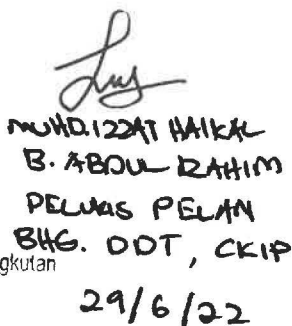 MUHD.IZZAT HAIKAL
B. ABDUL RAHIM
PELUKIS PELAN
BHG. DDT, CKIP
gkutan
29/6/22